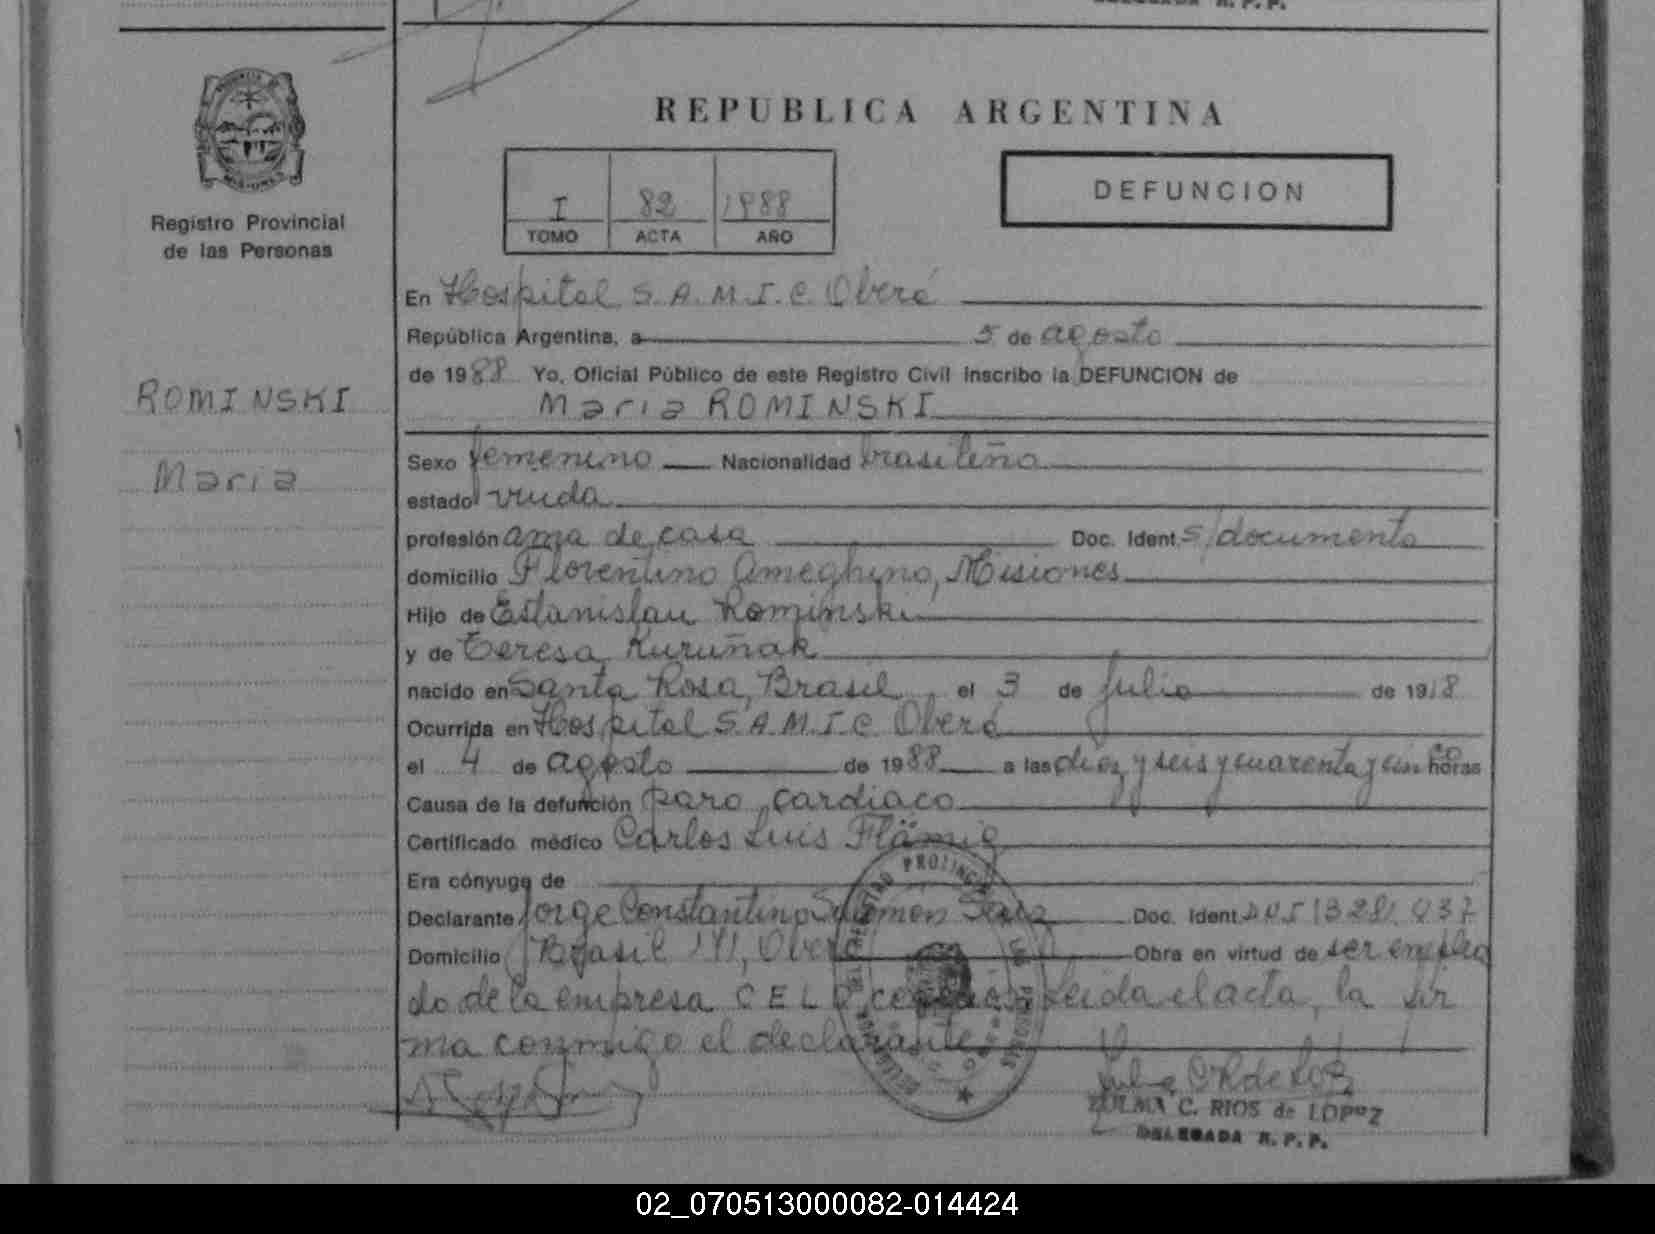 R. P. P.
REPUBLICA ARGENTINA
I 82 1988
TOMO ACTA AÑO
DEFUNCION
Registro Provincial
de las Personas
ROMINSKI
Maria
En Hospital S.A.M.I.C. Oberá
República Argentina, a 5 de agosto
de 1988 Yo, Oficial Público de este Registro Civil inscribo la DEFUNCION de
Maria ROMINSKI
Sexo femenino Nacionalidad brasileña
estado viuda
profesión ama de casa Doc. Ident. s/documento
domicilio Florentino Ameghino, Misiones
Hijo de Estanislau Rominski
y de Teresa Kuruñak
nacido en Santa Rosa, Brasil, el 3 de julio de 1918
Ocurrida en Hospital S.A.M.I.C. Oberá
el 4 de agosto de 1988 a las diez y seis y cuarenta y cinco horas
Causa de la defunción paro cardiaco
Certificado médico Carlos Luis Flämig
Era cónyuge de
Declarante Jorge Constantino Doc. Ident. DNI
Domicilio Brasil 141, Oberá Obra en virtud de ser emplea
do de la empresa C E L O Leida el acta, la fir
ma conmigo el declarante
ZULMA C. RIOS de LOPEZ
DELEGADA R. P. P.
02_070513000082-014424